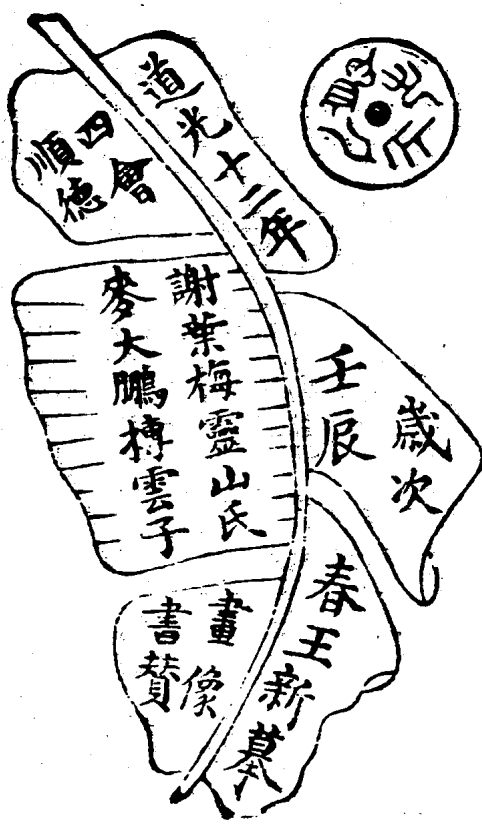 道光十二年
歲次
壬辰
春王新摹
四會
順德
謝葉梅靈山氏
麥大鵬搏雲子
畫像
書贊